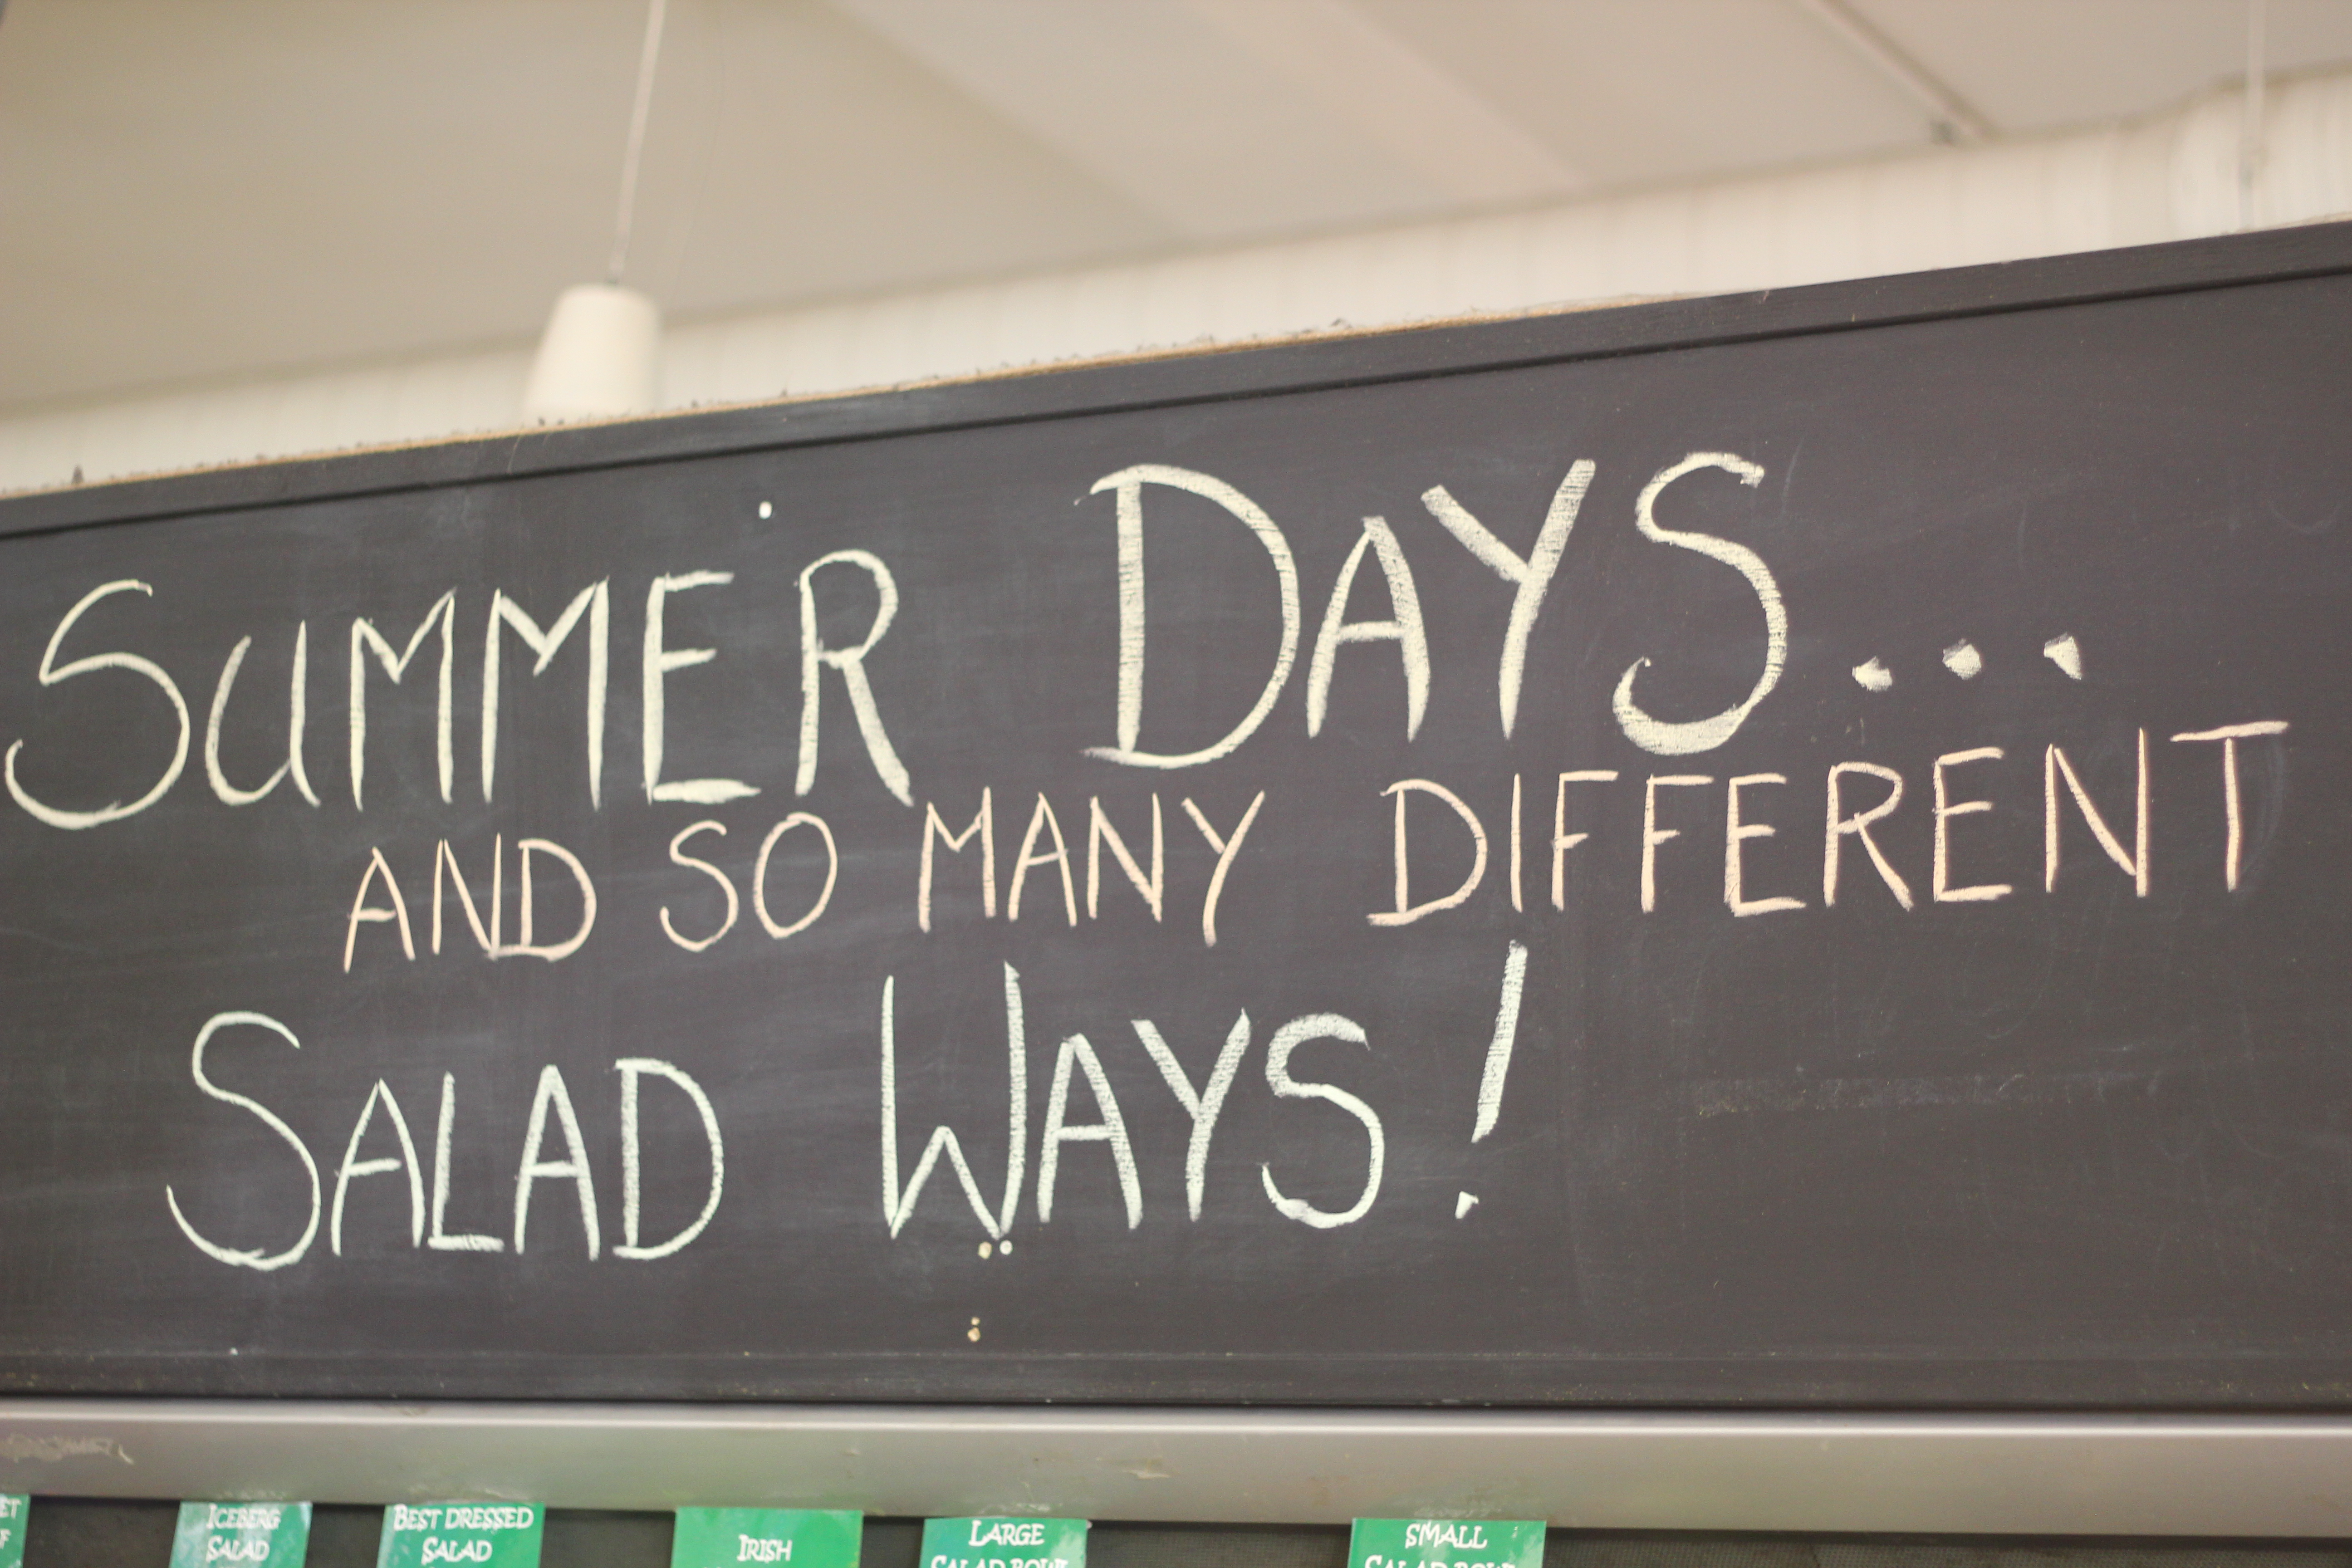 SUMMER DAYS...
AND SO MANY DIFFERENT
SALAD WAYS!
ICEBERG
SALAD
BEST DRESSED
SALAD
IRISH
LARGE
SALAD BOWL
SMALL
SALAD BOWL